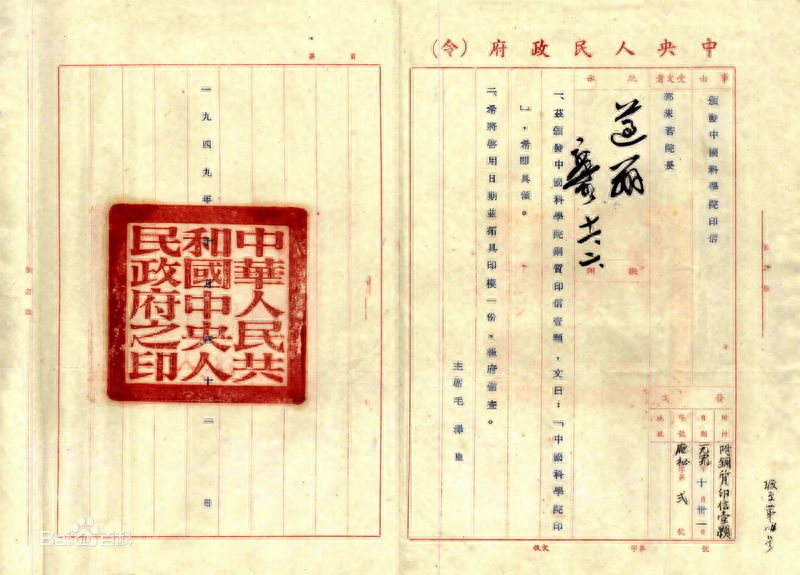 中央人民政府（令）
事由
頒發中國科學院印信
受文者
郭沫若院長
批示
遵辦
擬辦
一、茲頒發中國科學院銅質印信壹顆，文曰：「中國科學院印
」，希即具領。
二、希將啓用日期並拓具印模一份，報府備查。
主席毛澤東
發文
附件
附銅質印信壹顆
日期
十月卅一日
字號
廳秘字第弍號
地址
收文
字第
號
裝訂線
第
頁
一九四九年十月三十一日
中華人民共
和國中央人
民政府之印
裝訂線
Baidu百科